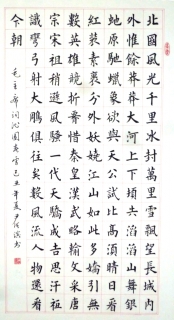 北國風光千里冰封萬里雪飄望長城內
外惟餘莽莽大河上下頓失滔滔山舞銀
虵原馳蠟象欲與天公試比高須晴日看
紅裝素裹分外妖嬈江山如此多嬌引無
數英雄競折腰惜秦皇漢武略輸文采唐
宗宋祖稍遜風騷一代天驕成吉思汗祗
識彎弓射大鵰俱往矣數風流人物還看
今朝
毛主席詞沁園春雪己丑年夏尹書